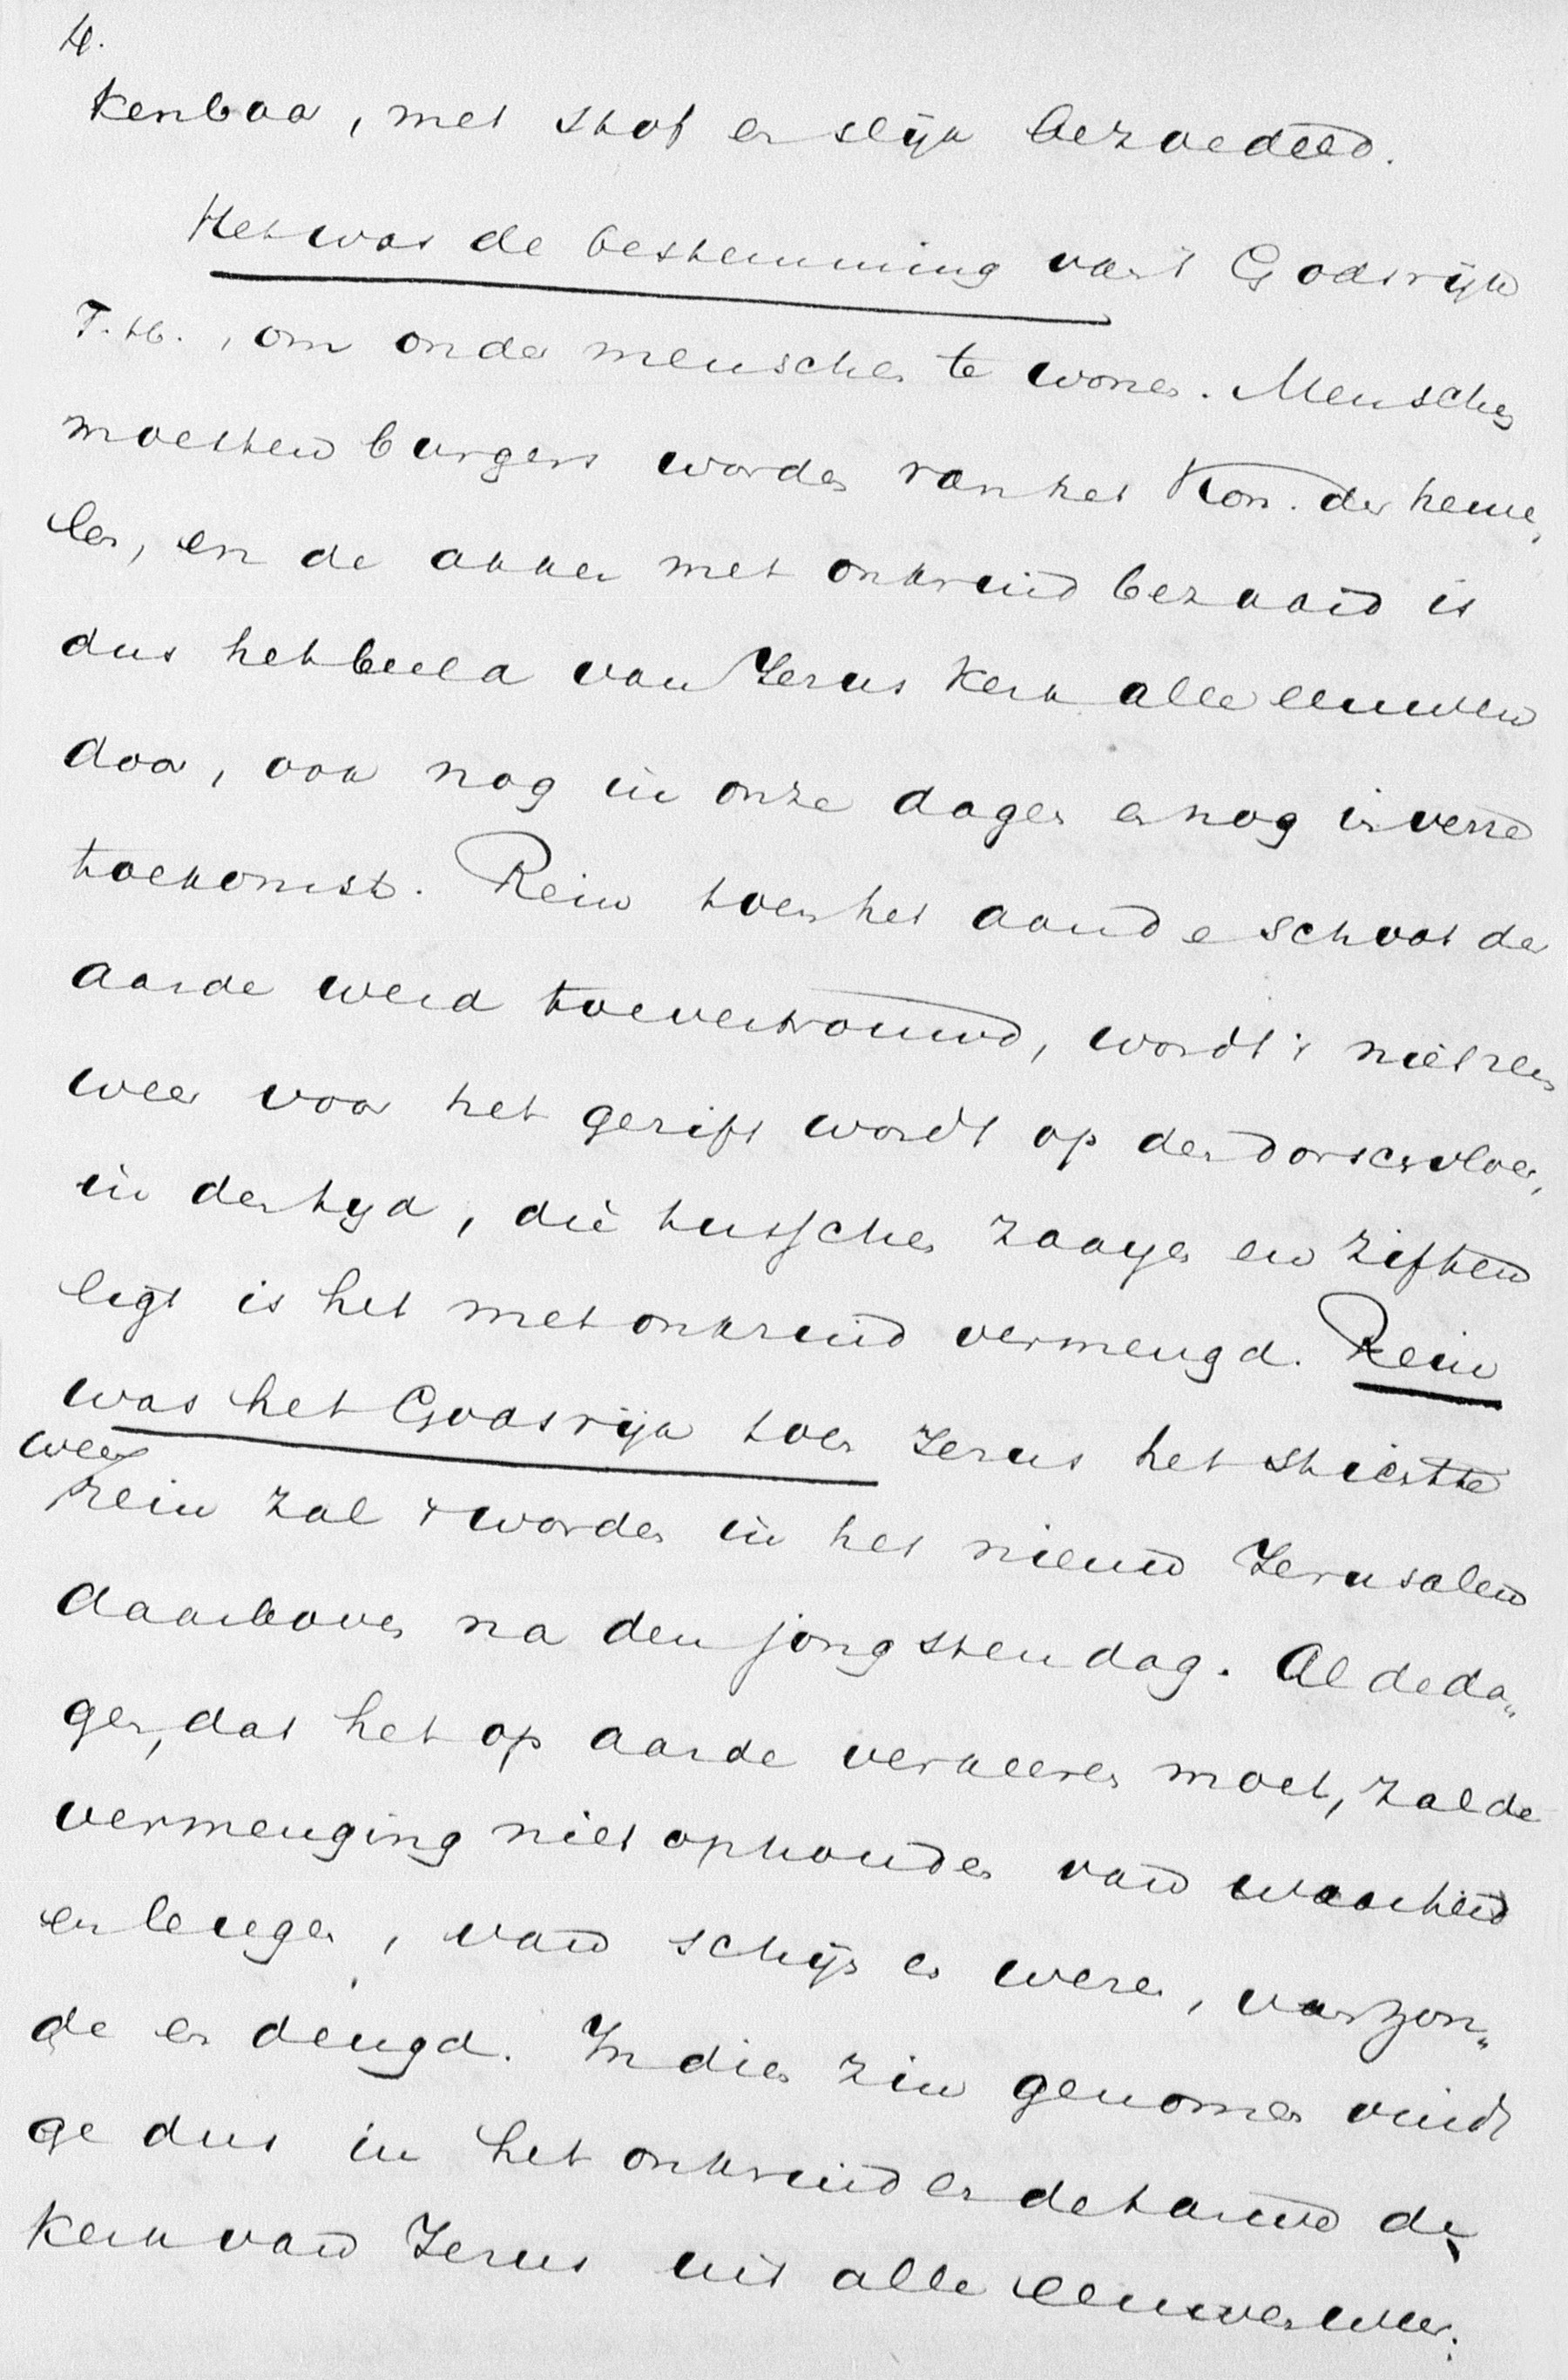 4.
kenbaar, met stof en slijk bezoedeld.
Het was de bestemming van 't Godsrijk
T. H., om onder menschen te wonen. Menschen
moesten burgers worden van het Kon. der heme„
len, en de akker met onkruid bezaaid is
dus het beeld van Jezus kerk alle eeuwen
door, ook nog in onze dagen en nog in verre
toekomst. Rein toen het aan de schoot der
aarde werd toevertrouwd, wordt 't niet rein
weer voor het gezift wordt op den dorschvloer,
in den tijd, die tusschen zaayen en ziften
ligt is het met onkruid vermengd. Rein
was het Godsrijk toen Jezus het stichtte
weer
rein zal + worden in het nieuw Jeruzalem
daarboven na den jongsten dag. Al de da„
gen, dat het op aarde verkeeren moet, zal de
vermenging niet ophouden van waarheid
en leugen, van schijn en wezen, van zon„
de en deugd. In dien zin genomen vindt
ge dus in het onkruid en de tarwe de
kerk van Jezus uit alle eeuwen weer.